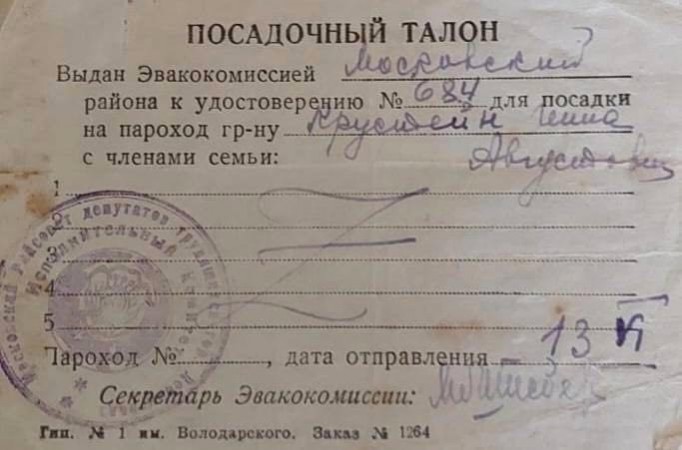 ПОСАДОЧНЫЙ ТАЛОН
Выдан Эвакокомиссией Московский
района к удостоверению № 684 для посадки
на пароход гр-ну Крустейн
с членами семьи: Августович
1
2
3
4
5
Пароход № , дата отправления 13
Секретарь Эвакокомиссии:
Тип. № 1 им. Володарского. Заказ № 1264
Московский райсовет депутатов трудящихся
Исполнительный комитет